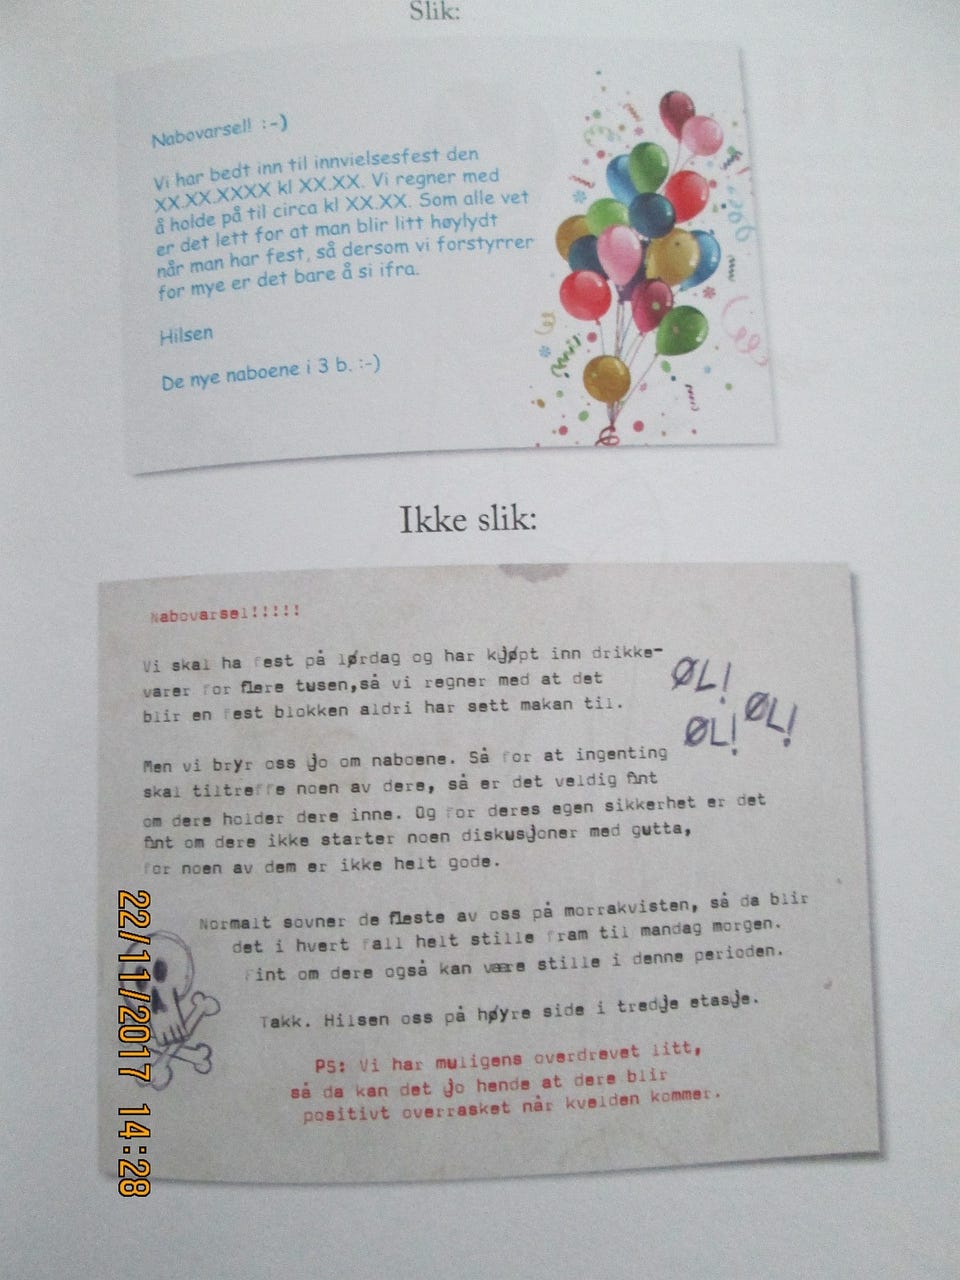 Slik:
Nabovarsel! :-)
Vi har bedt inn til innvielsesfest den
XX.XX.XXXX kl XX.XX. Vi regner med
å holde på til circa kl XX.XX. Som alle vet
er det lett for at man blir litt høylydt
når man har fest, så dersom vi forstyrrer
for mye er det bare å si ifra.
Hilsen
De nye naboene i 3 b. :-)
Ikke slik:
Nabovarsel!!!!!
Vi skal ha fest på lørdag og har kjøpt inn drikke-
varer for flere tusen,så vi regner med at det
blir en fest blokken aldri har sett makan til.
ØL!
ØL! ØL!
Men vi bryr oss jo om naboene. Så for at ingenting
skal tiltreffe noen av dere, så er det veldig fint
om dere holder dere inne. Og for deres egen sikkerhet er det
fint om dere ikke starter noen diskusjoner med gutta,
for noen av dem er ikke helt gode.
Normalt sovner de fleste av oss på morrakvisten, så da blir
det i hvert fall helt stille fram til mandag morgen.
Fint om dere også kan være stille i denne perioden.
Takk. Hilsen oss på høyre side i tredje etasje.
PS: Vi har muligens overdrevet litt,
så da kan det jo hende at dere blir
positivt overrasket når kvelden kommer.
22/11/2017 14:28